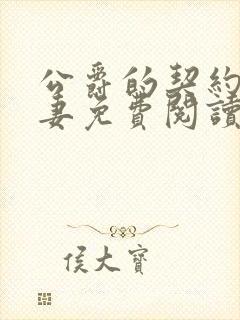 公爵的契約
妻免費閱讀
侯大寶